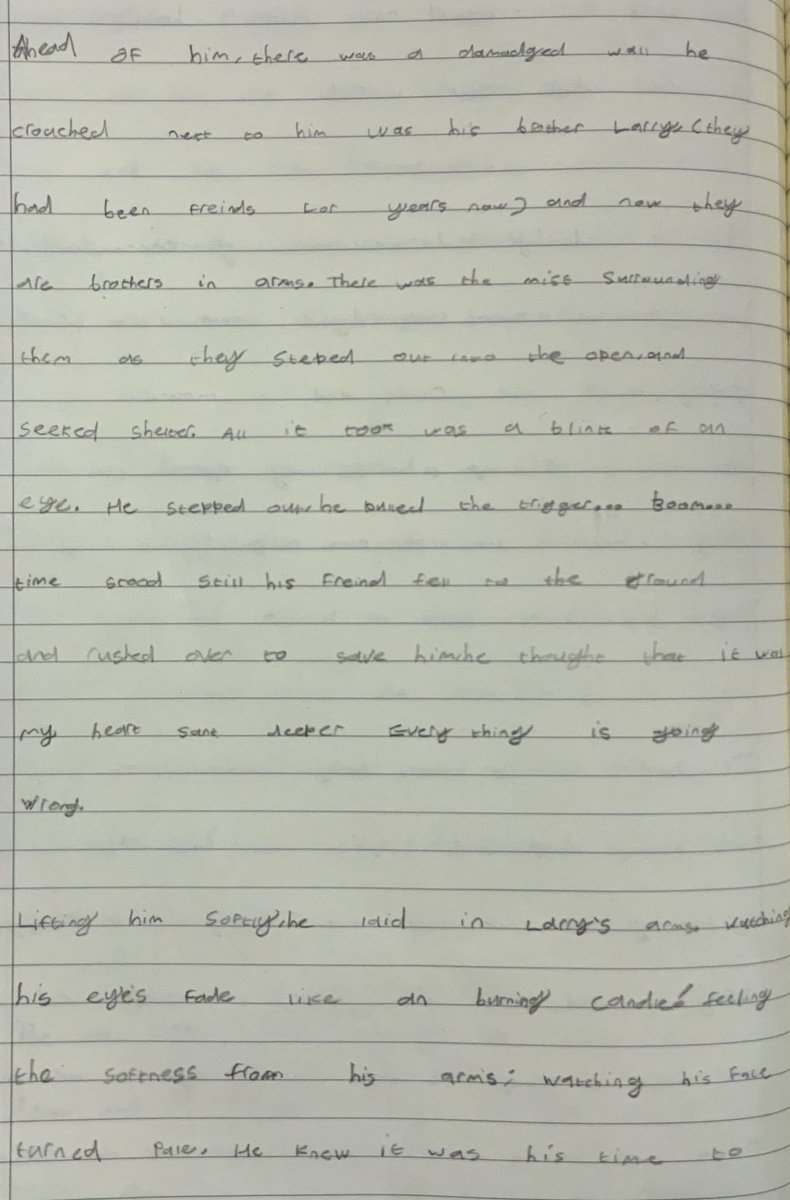 Ahead of him, there was a damadged wall he
crouched next to him was his brother Larry, (they
had been freinds for years now) and now they
are brothers in arms. There was the mist surrounding
them as they steped out into the open, and
seeked shelter. All it took was a blink of an
eye. He stepped out, he pulled the trigger... Boom....
time stood still his freind fell to the ground
and rushed over to save him, he thought that it was
my heart sank deeper Every thing is going
wrong.
Lifting him softly, he laid in Larry's arms, watching
his eye's fade like an burning candle! feeling
the softness from his arm's; watching his face
turned pale. He knew it was his time to